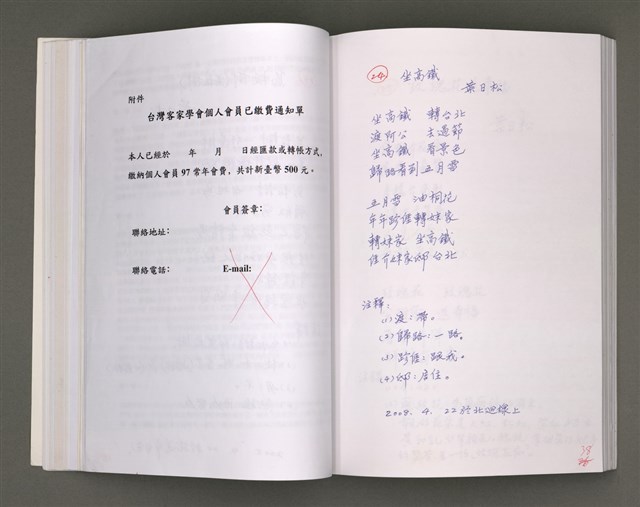 附件
台灣客家學會個人會員已繳費通知單
本人已經於 年 月 日經匯款或轉帳方式，
繳納個人會員 97 常年會費，共計新臺幣 500 元。
會員簽章：
聯絡地址：
聯絡電話： E-mail:
24. 坐高鐵
葉日松
坐高鐵 轉台北
渡阿公 去過節
坐高鐵 看景色
歸路看到五月雪
五月雪 油桐花
年年跈𠊎轉妹家
轉妹家 坐高鐵
𠊎个妹家邸台北
注釋：
(1)渡：帶。
(2)歸路：一路。
(3)跈𠊎：跟我。
(4)邸：居住。
2008. 4. 22於北迴線上